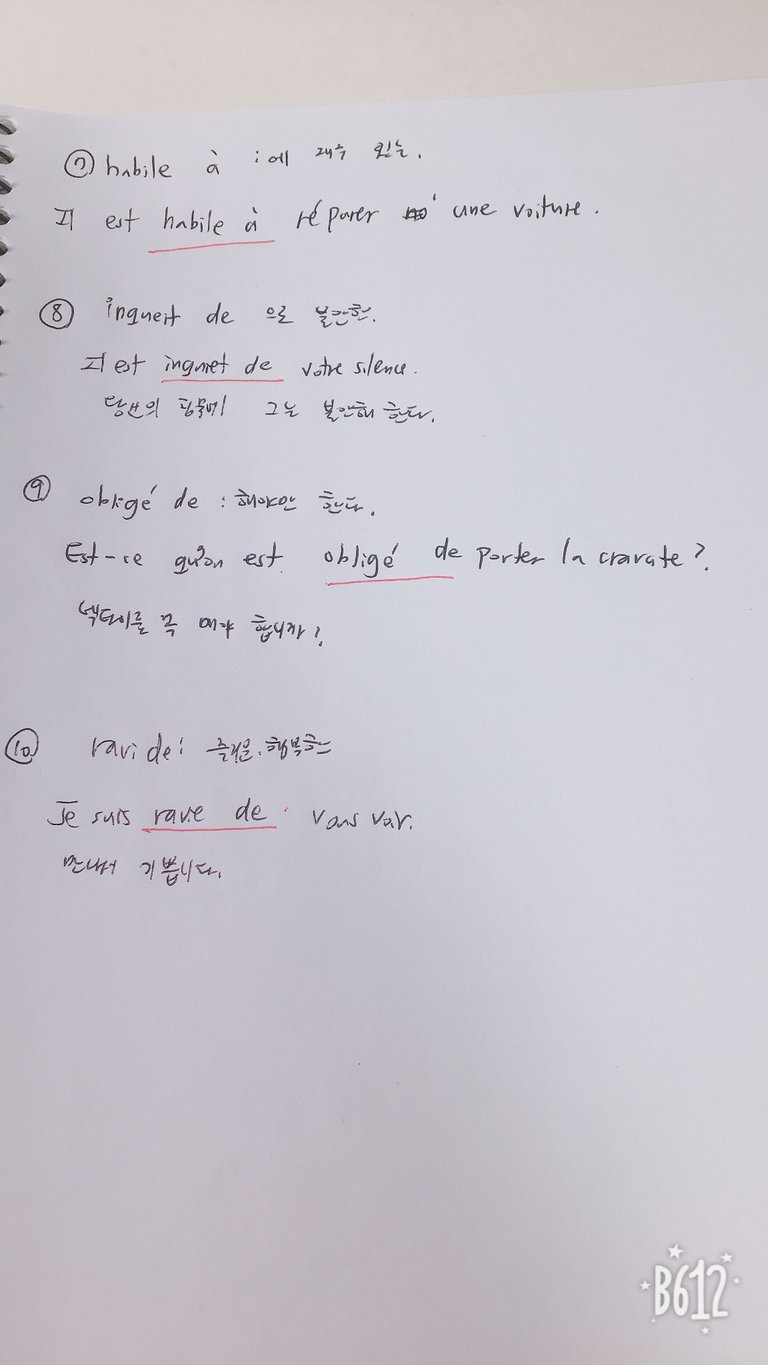 ⑦ habile à : 에 재주 있는.
Il est habile à réparer une voiture.
⑧ inqueit de 으로 불안한.
Il est inquiet de votre silence.
당신의 침묵에 그는 불안해 한다.
⑨ obligé de : 해야만 한다.
Est-ce qu'on est obligé de porter la cravate ?
넥타이를 꼭 매야 합니까?
⑩ ravi de : 즐거운. 행복한
Je suis rave de vous voir.
만나서 기쁩니다.
B612